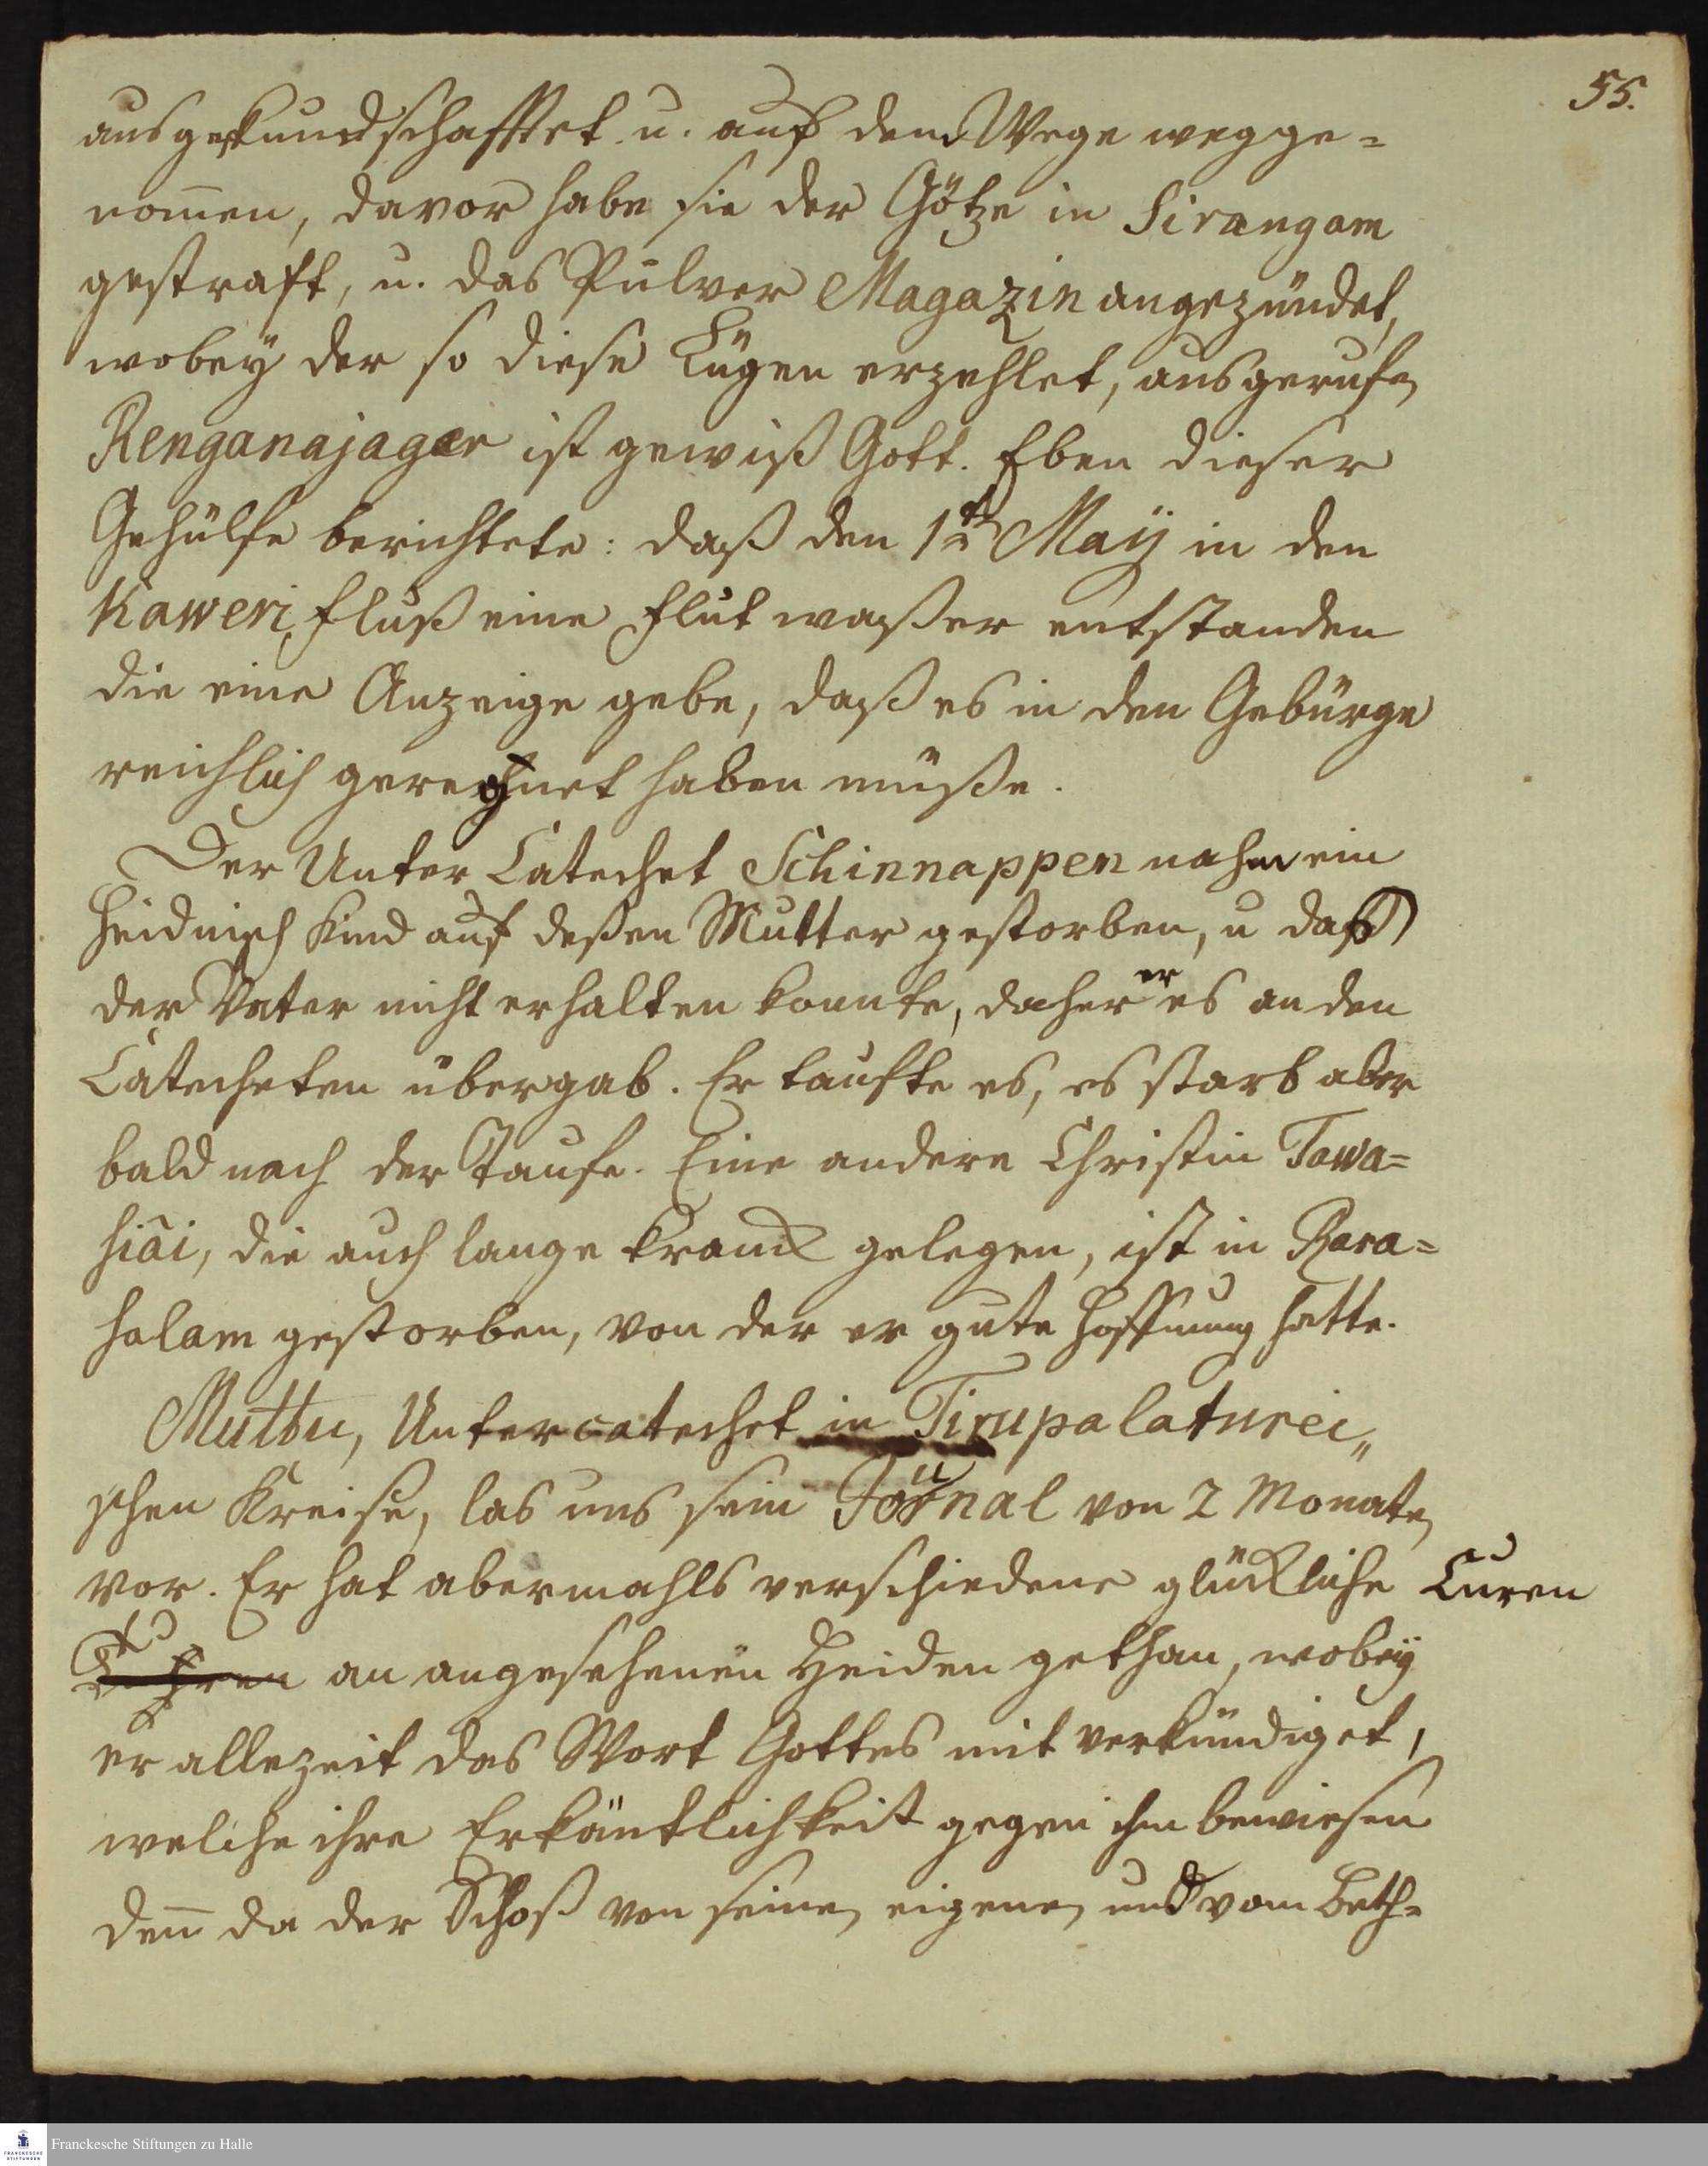 55.
ausgekundschafftet u. auf dem Wege wegge=
nom̄en, davor habe sie der Götze in Sirangam
gestraft, u. das Pulver Magazin angezündet,
wobey der so diese Lügen erzehlet, ausgerufen
Renganajager ist gewiß Gott. Eben dieser
Gehülfe berichtete: daß den 1t May in den
Kaweri fluß eine flut waßer entstanden
die eine Anzeige gebe, daß es in den Gebürge
reichlich geregnet haben müße.
Der Unter Catechet Schinnappen nahm ein
Heidnisch Kind auf deßen Mutter gestorben, u daß
der Vater nicht erhalten konnte, daher er es an den
Catecheten übergab. Er taufte es, es starb aber
bald nach der Taufe. Eine andere Christin Tawa=
siäi, die auch lange kranck gelegen, ist in Rasa=
salam gestorben, von der er gute Hoffnung hatte.
Muttu, Untercatechet in Tirupalaturei„
schen Kreise, las uns sein Journal von 2 Monaten
vor. Er hat abermahls verschiedene glückliche Curen
an angesehenen Heiden gethan, wobey
er allezeit das Wort Gottes mit verkündiget,
welche ihre Erkäntlichkeit gegen ihn bewiesen
den̄ da der Schoß von seinen eigenen und vom Beth=
Franckesche Stiftungen zu Halle